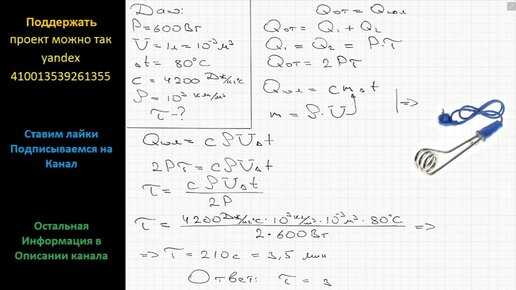 Поддержать
проект можно так
yandex
410013539261355
Ставим лайки
Подписываемся на
Канал
Остальная
Информация в
Описании канала
Дано:
P = 600 Вт
V = 1л = 10⁻³ м³
Δt = 80°C
c = 4200 Дж/кг·°C
ρ = 10³ кг/м³
τ - ?
Qот = Qпол
Qот = Q₁ + Q₂
Q₁ = Q₂ = P·τ
Qот = 2Pτ
Qпол = cmΔt
m = ρ·V
|=>
Qпол = cρVΔt
2Pτ = cρVΔt
τ = cρVΔt / 2P
τ = 4200 Дж/кг°C · 10³ кг/м³ · 10⁻³ м³ · 80°C / 2·600 Вт =>
=> τ = 210 с = 3,5 мин
Ответ: τ = 3